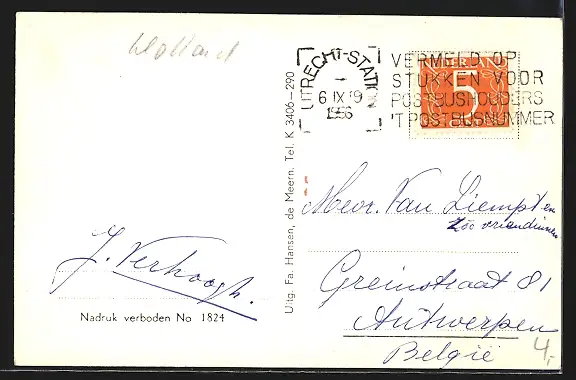 Holland
UTRECHT-STATION
6 IX 19
1956
VERMELD OP
STUKKEN VOOR
POSTBUSHOUDERS
'T POSTBUSNUMMER
NEDERLAND
5
CENT
Uitg. Fa. Hansen, de Meern. Tel. K 3406-290
Mevr. Van Liempt en
Zoo vriendinnen
J. Verhoogh.
Greinstraat 81
Antwerpen
België
4,-
Nadruk verboden No 1824